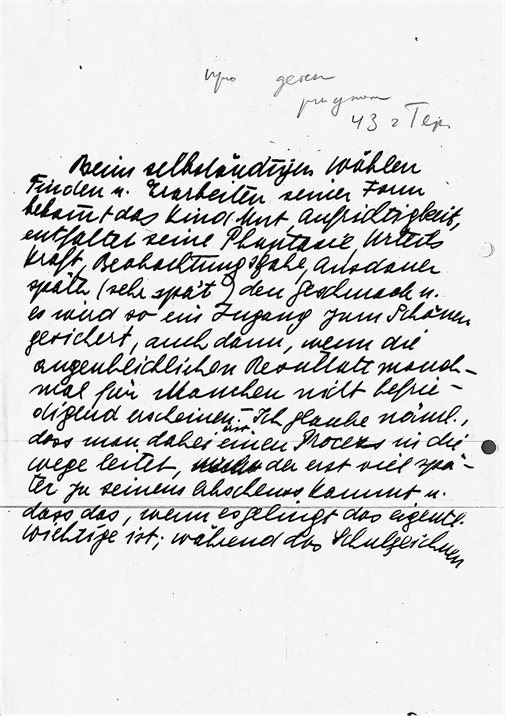 43 г Тер
Beim selbständigen Wählen
Finden u. Erarbeiten seiner Form
bekommt das Kind Mut, Aufrichtigkeit,
entfaltet seine Phantasie, Urteils
kraft, Beobachtungsgabe, Ausdauer
später (sehr spät!) den Geschmack u.
es wird so ein Zugang zum Schönen
gesichert, auch dann, wenn die
augenblicklichen Resultate manch-
mal für Manchen nicht befrie-
digend erscheinen. – Ich glaube näml.,
dass man dabei nur einen Process in die
wege leitet, der erst viel spä-
ter zu seinem Abschluss kommt u.
dass das, wenn es gelingt das eigentl.
wichtige ist; während das Schulzeichnen